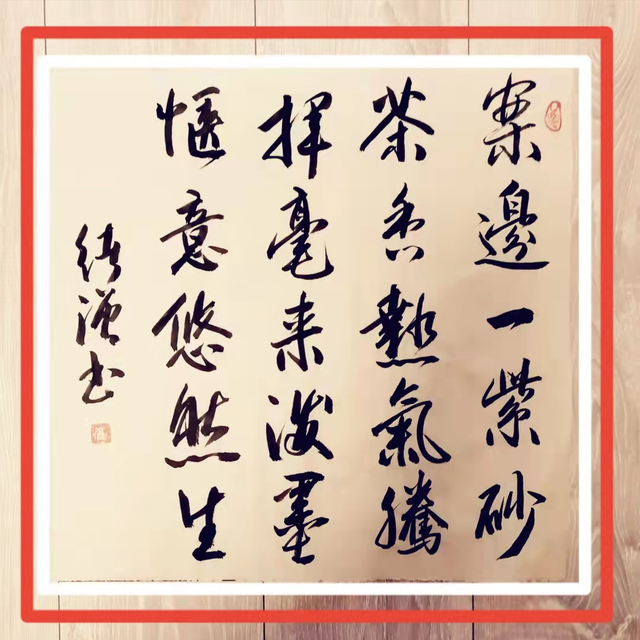 案邊一紫砂
茶香熱氣騰
揮毫来潑墨
愜意悠然生
书